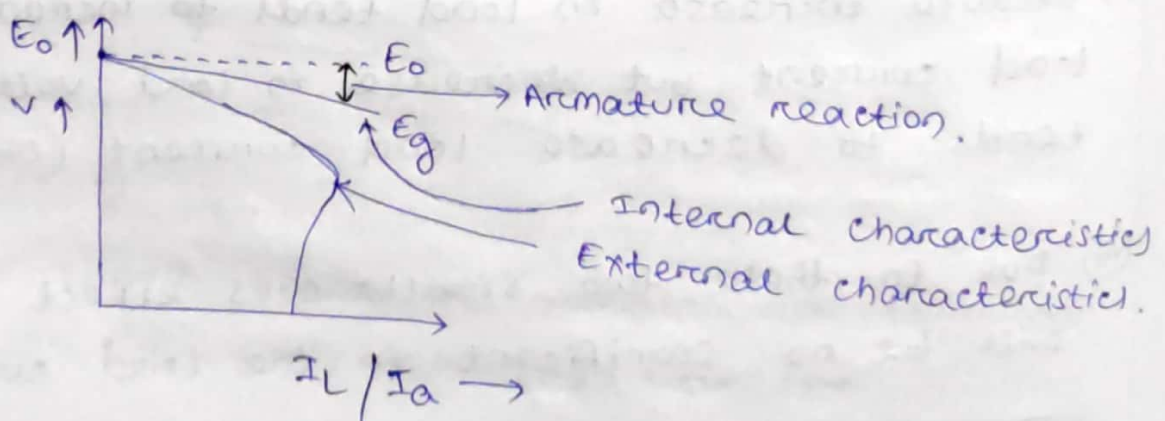 E₀ ↑↑
E₀
V ↑
→ Armature reaction.
Eg
Internal characteristics
External characteristics.
I_L / I_a →